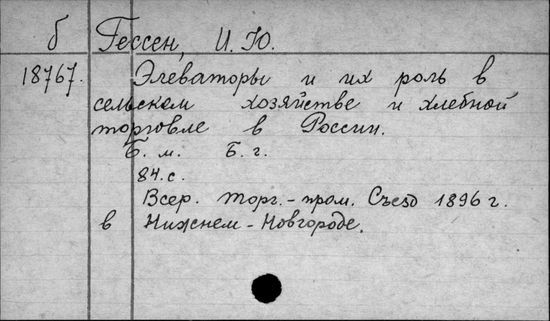 б Гессен, И. Ю.
18767. Элеваторы и их роль в
сельском хозяйстве и хлебной
торговле в России.
Б. м. Б. г.
84 с.
Всер. торг.-пром. Съезд 1896 г.
в Нижнем-Новгороде.